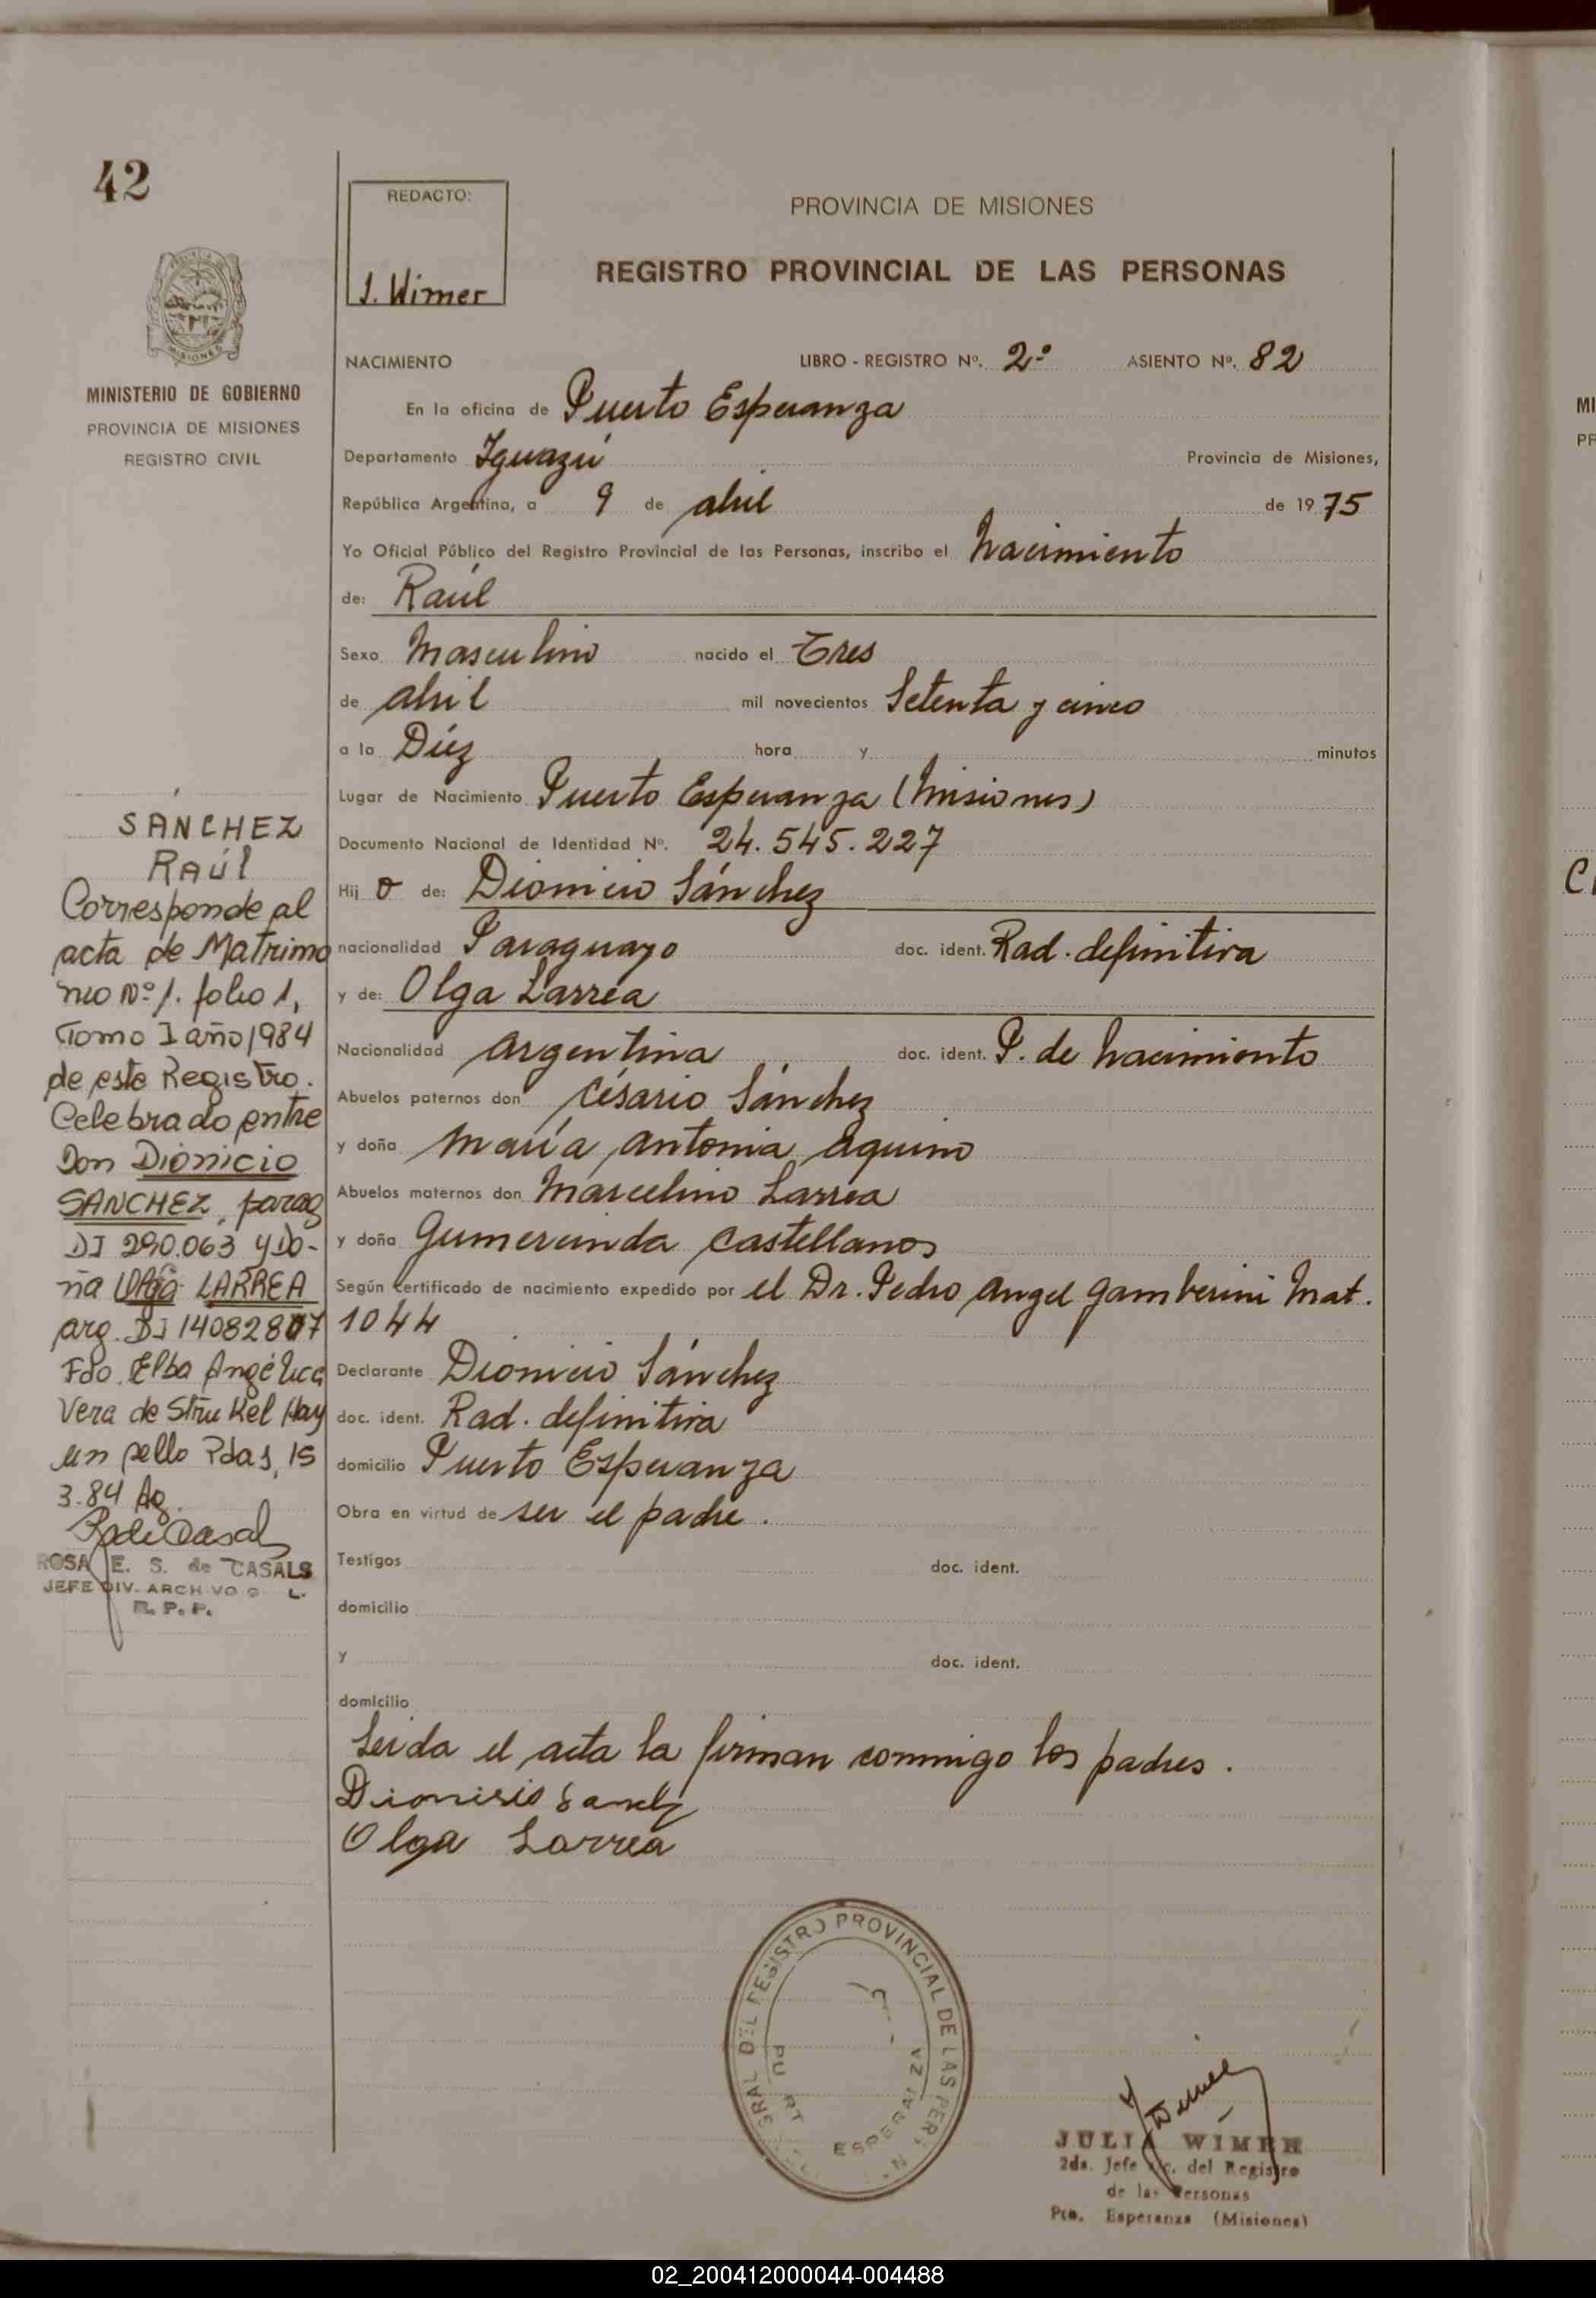 42
REDACTO:
J. Wimer
PROVINCIA DE MISIONES
REGISTRO PROVINCIAL DE LAS PERSONAS
MISIONES
MINISTERIO DE GOBIERNO
PROVINCIA DE MISIONES
REGISTRO CIVIL
NACIMIENTO LIBRO - REGISTRO Nº. 2º ASIENTO Nº. 82
En la oficina de Puerto Esperanza
Departamento Iguazú Provincia de Misiones,
República Argentina, a 9 de abril de 1975
Yo Oficial Público del Registro Provincial de las Personas, inscribo el nacimiento
de: Raúl
Sexo Masculino nacido el Tres
de abril mil novecientos Setenta y cinco
a la Diéz hora y minutos
Lugar de Nacimiento Puerto Esperanza (Misiones)
Documento Nacional de Identidad Nº. 24.545.227
Hijo de: Dionicio Sánchez
nacionalidad Paraguayo doc. ident. Rad. definitiva
y de: Olga Larrea
Nacionalidad argentina doc. ident. P. de nacimiento
Abuelos paternos don Césario Sánchez
y doña María Antonia Aquino
Abuelos maternos don Marcelino Larrea
y doña Gumercinda Castellanos
Según certificado de nacimiento expedido por el Dr. Pedro Angel Gamberini Mat.
1044
Declarante Dionicio Sánchez
doc. ident. Rad. definitiva
domicilio Puerto Esperanza
Obra en virtud de ser el padre.
Testigos doc. ident.
domicilio
y doc. ident.
domicilio
Leida el acta la firman conmigo los padres.
Dionisio Sanchz
Olga Larrea
SANCHEZ
RAÚl
Corresponde al
acta de Matrimo
nio Nº 1. folio 1,
Tomo I año 1984
de este Registro.
Celebrado entre
Don Dionicio
SANCHEZ, parag
DI 290.063 y Do-
ña Olga LARREA
arg. DI 14082807
Fdo. Elba Angélica
Vera de Strukel Hay
un sello Pdas, 15
3.84 Ag.
ROSA E. S. de CASALS
JEFE DIV. ARCHIVO G L.
R. P. P.
GRAL DEL REGISTRO PROVINCIAL DE LAS PERS
PU RT ESPERANZA
JULIA WIMER
2da. Jefe Of. del Registro
de las Personas
Pto. Esperanza (Misiones)
MI
PR
02_200412000044-004488